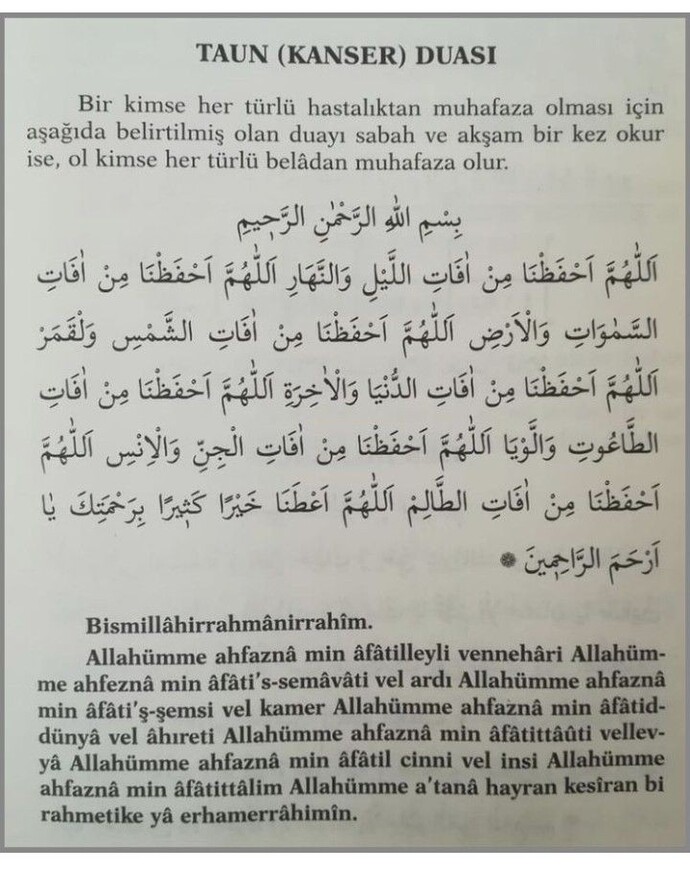 TAUN (KANSER) DUASI
Bir kimse her türlü hastalıktan muhafaza olması için
aşağıda belirtilmiş olan duayı sabah ve akşam bir kez okur
ise, ol kimse her türlü belâdan muhafaza olur.
بِسْمِ اللّٰهِ الرَّحْمٰنِ الرَّحٖيمِ
اَللّٰهُمَّ اَحْفَظْنَا مِنْ اٰفَاتِ اللَّيْلِ وَالنَّهَارِ اَللّٰهُمَّ اَحْفَظْنَا مِنْ اٰفَاتِ
السَّمٰوَاتِ وَالْاَرْضِ اَللّٰهُمَّ اَحْفَظْنَا مِنْ اٰفَاتِ الشَّمْسِ وَلْقَمَرْ
اَللّٰهُمَّ اَحْفَظْنَا مِنْ اٰفَاتِ الدُّنْيَا وَالْاٰخِرَةِ اَللّٰهُمَّ اَحْفَظْنَا مِنْ اٰفَاتِ
الطَّاعُوتِ وَالَّوْيَا اَللّٰهُمَّ اَحْفَظْنَا مِنْ اٰفَاتِ الْجِنِّ وَالْاِنْسِ اَللّٰهُمَّ
اَحْفَظْنَا مِنْ اٰفَاتِ الطَّالِمْ اَللّٰهُمَّ اَعْطَنَا خَيْرًا كَثٖيرًا بِرَحْمَتِكَ يَا
اَرْحَمَ الرَّاحِمٖينَ
Bismillâhirrahmânirrahîm.
Allahümme ahfaznâ min âfâtilleyli vennehâri Allahüm-
me ahfeznâ min âfâti's-semâvâti vel ardı Allahümme ahfaznâ
min âfâti'ş-şemsi vel kamer Allahümme ahfaznâ min âfâtid-
dünyâ vel âhıreti Allahümme ahfaznâ min âfâtittâûti vellev-
yâ Allahümme ahfaznâ min âfâtil cinni vel insi Allahümme
ahfaznâ min âfâtittâlim Allahümme a'tanâ hayran kesîran bi
rahmetike yâ erhamerrâhimîn.